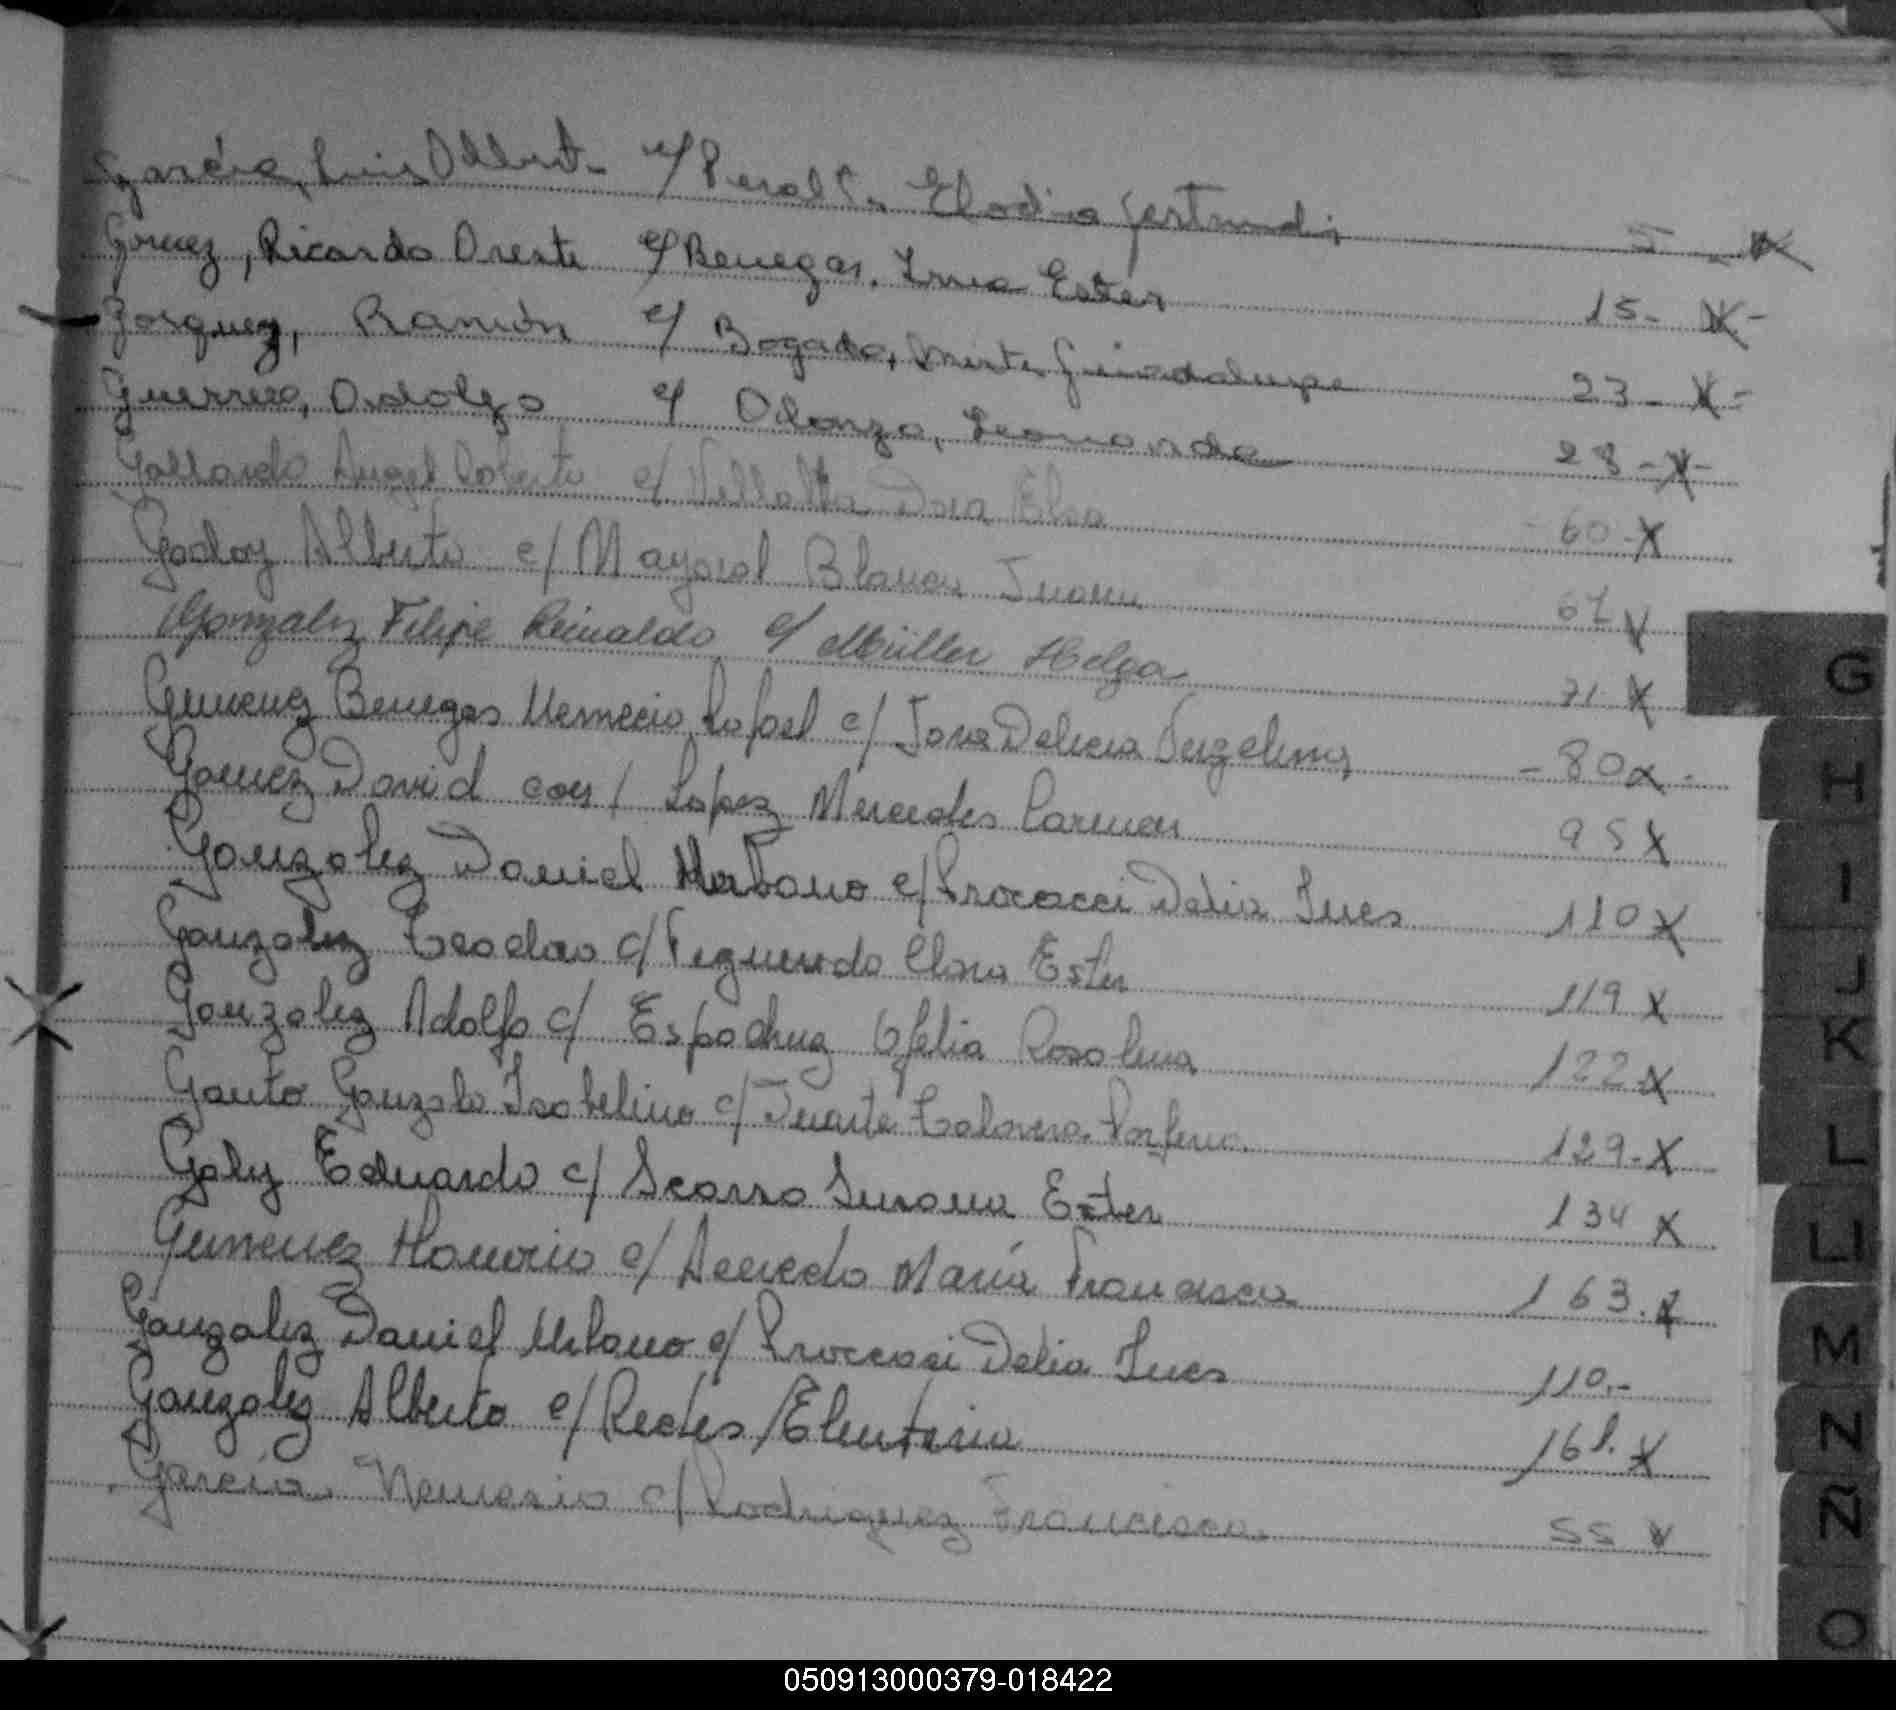 García, Luis Albert- c/ Peralta Elodia Gertrudis 5 - X
Gomez, Ricardo Oreste c/ Benegas, Irma Ester 15- X-
Ramón c/ Bogado, Mirta Guadalupe 23- X-
Guerrero, Adolfo c/ Alonzo, Leonarda 28- X-
Gallardo Angel Roberto c/ Villalta Dora Elsa 60-X
Godoy Alberto c/ Mayoral Blanca Juana 67 V
Gonzalez Felipe Reinaldo c/ Müller Helga 71 X
Gimenez Benegas Nemecio Rafael c/ Jara Delicia - 80 X -
Gomez David con/ Lopez Mercedes Carmen 95 X
Gonzalez Daniel Urbano c/ Procacci Delia Ines 110 X
Gonzalez Teodoro c/ Figueredo Clara Ester 119 X
Gonzalez Adolfo c/ Ofelia Rosalina 122-X
Gauto Gonzalo Isabelino c/ Duarte Talavera 129-X
Galez Eduardo c/ Scarso Susana Ester 134 X
Gimenez Honorio c/ Acevedo María Francisca 163. X
Gonzalez Daniel Urbano c/ Proccasi Delia Ines 110.-
Gonzalez Alberto c/ Redes Eleuteria 161. X
García Nemesio c/ Rodriguez Francisca. 55 V
G
H
I
J
K
L
LL
M
N
Ñ
O
050913000379-018422